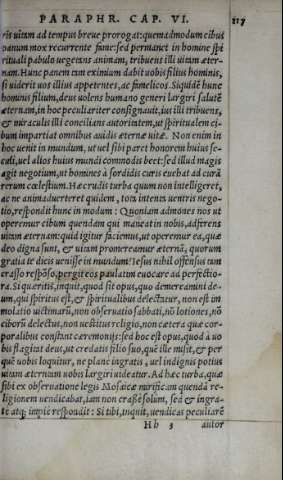 PARAPHR. CAP. VI.
ris uitam ad tempus breue prorogat: quemadmodum cibus
panum mox recurrente fame: sed permanet in homine spi
rituali pabulo uegetans animam, tribuens illi uitam æter-
nam. Hunc panem tam eximium dabit uobis filius hominis,
si uiderit uos illius appetentes, ac famelicos. Siquidē hunc
hominis filium, deus uolens humano generi largiri salutē
æternam, in hoc peculiariter consignauit, ius illi tribuens,
& miraculis illi concilians autoritatem, ut spiritualem ci-
bum impartiat omnibus auidis æternæ uitæ. Non enim in
hoc uenit in mundum, ut uel sibi paret honorem huius se-
culi, uel alios huius mundi commodis beet: sed illud magis
agit negotium, ut homines à sordidis curis euehat ad curā
rerum cœlestium. Hæc rudis turba quum non intelligeret,
ac ne animaduerteret quidem, tota intenta uentris nego-
tio, respondit hunc in modum: Quoniam admones nos ut
operemur cibum quendam qui maneat in nobis, adferens
uitam æternam: quid igitur faciemus, ut operemur ea, quæ
deo digna sunt, & uitam promereamur æternā, quorum
gratia te dicis uenisse in mundum? Iesus nihil offensus tam
crasso respōso, pergit eos paulatim euocare ad perfectio-
ra. Si quæritis, inquit, quod sit opus, quo demereamini de-
um, qui spiritus est, & spiritualibus delectatur, non est im
molatio uictimarū, non obseruatio sabbati, nō lotiones, nō
ciborū delectus, non uestitus religio, non cætera quæ cor-
poralibus constant cæremonijs: sed hoc est opus, quod à uo
bis flagitat deus, ut credatis filio suo, quē ille misit, & per
quē uobis loquitur, ne planè ingratis, uel indignis potius
uitam æternam uobis largiri uideatur. Ad hæc turba, quæ
sibi ex obseruatione legis Mosaicæ mirificam quendā re-
ligionem uendicabat, iam non crassè solùm, sed & ingra-
tè atq; impiè respondit: Si tibi, inquit, uendicas peculiarē
Hh 3 autor